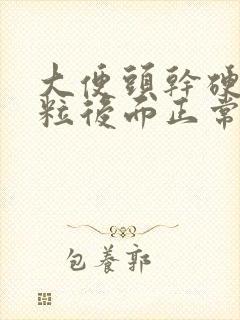 大便頭幹硬
粒後而正常
包養郭